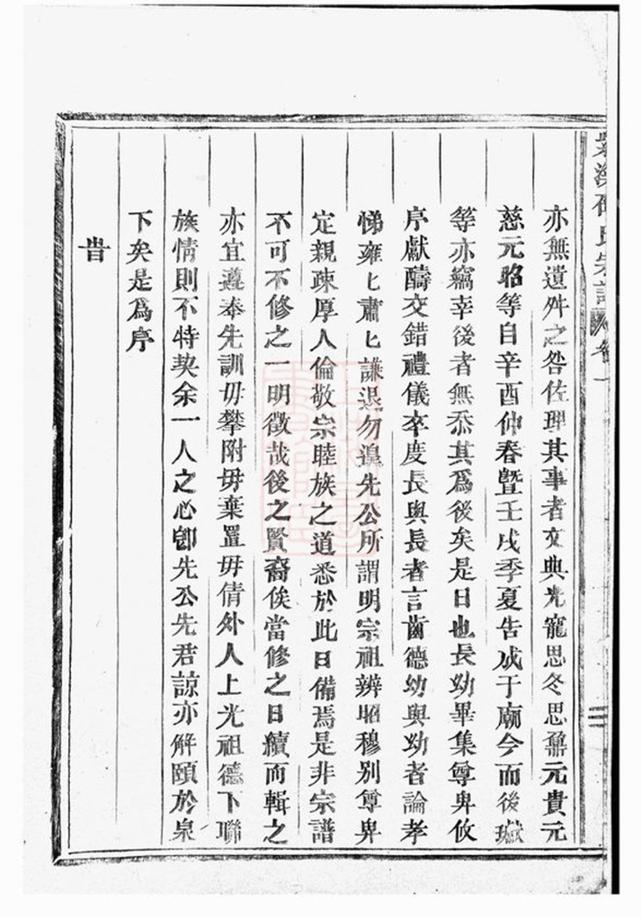 亦無遺舛之咎佐理其事者文典光寵思冬思鼐元貴元
慈元昭等自辛酉仲春暨壬戌季夏告成于廟今而後瑊
等亦竊幸後者無忝其為後矣是日也長幼畢集尊卑攸
序獻醻交錯禮儀卒度長與長者言齒德幼與幼者論孝
悌雍〻肅〻謙退勿遑先公所謂明宗祖辨昭穆別尊卑
定親疎厚人倫敬宗睦族之道悉於此日備焉是非宗譜
不可不修之一明徵哉後之賢裔俟當修之日續而輯之
亦宜遵奉先訓毋攀附毋棄置毋倩外人上光祖德下聯
族情則不特契余一人之心卽先公先君諒亦解頤於泉
下矣是為序
旹
氏宗譜
卷一